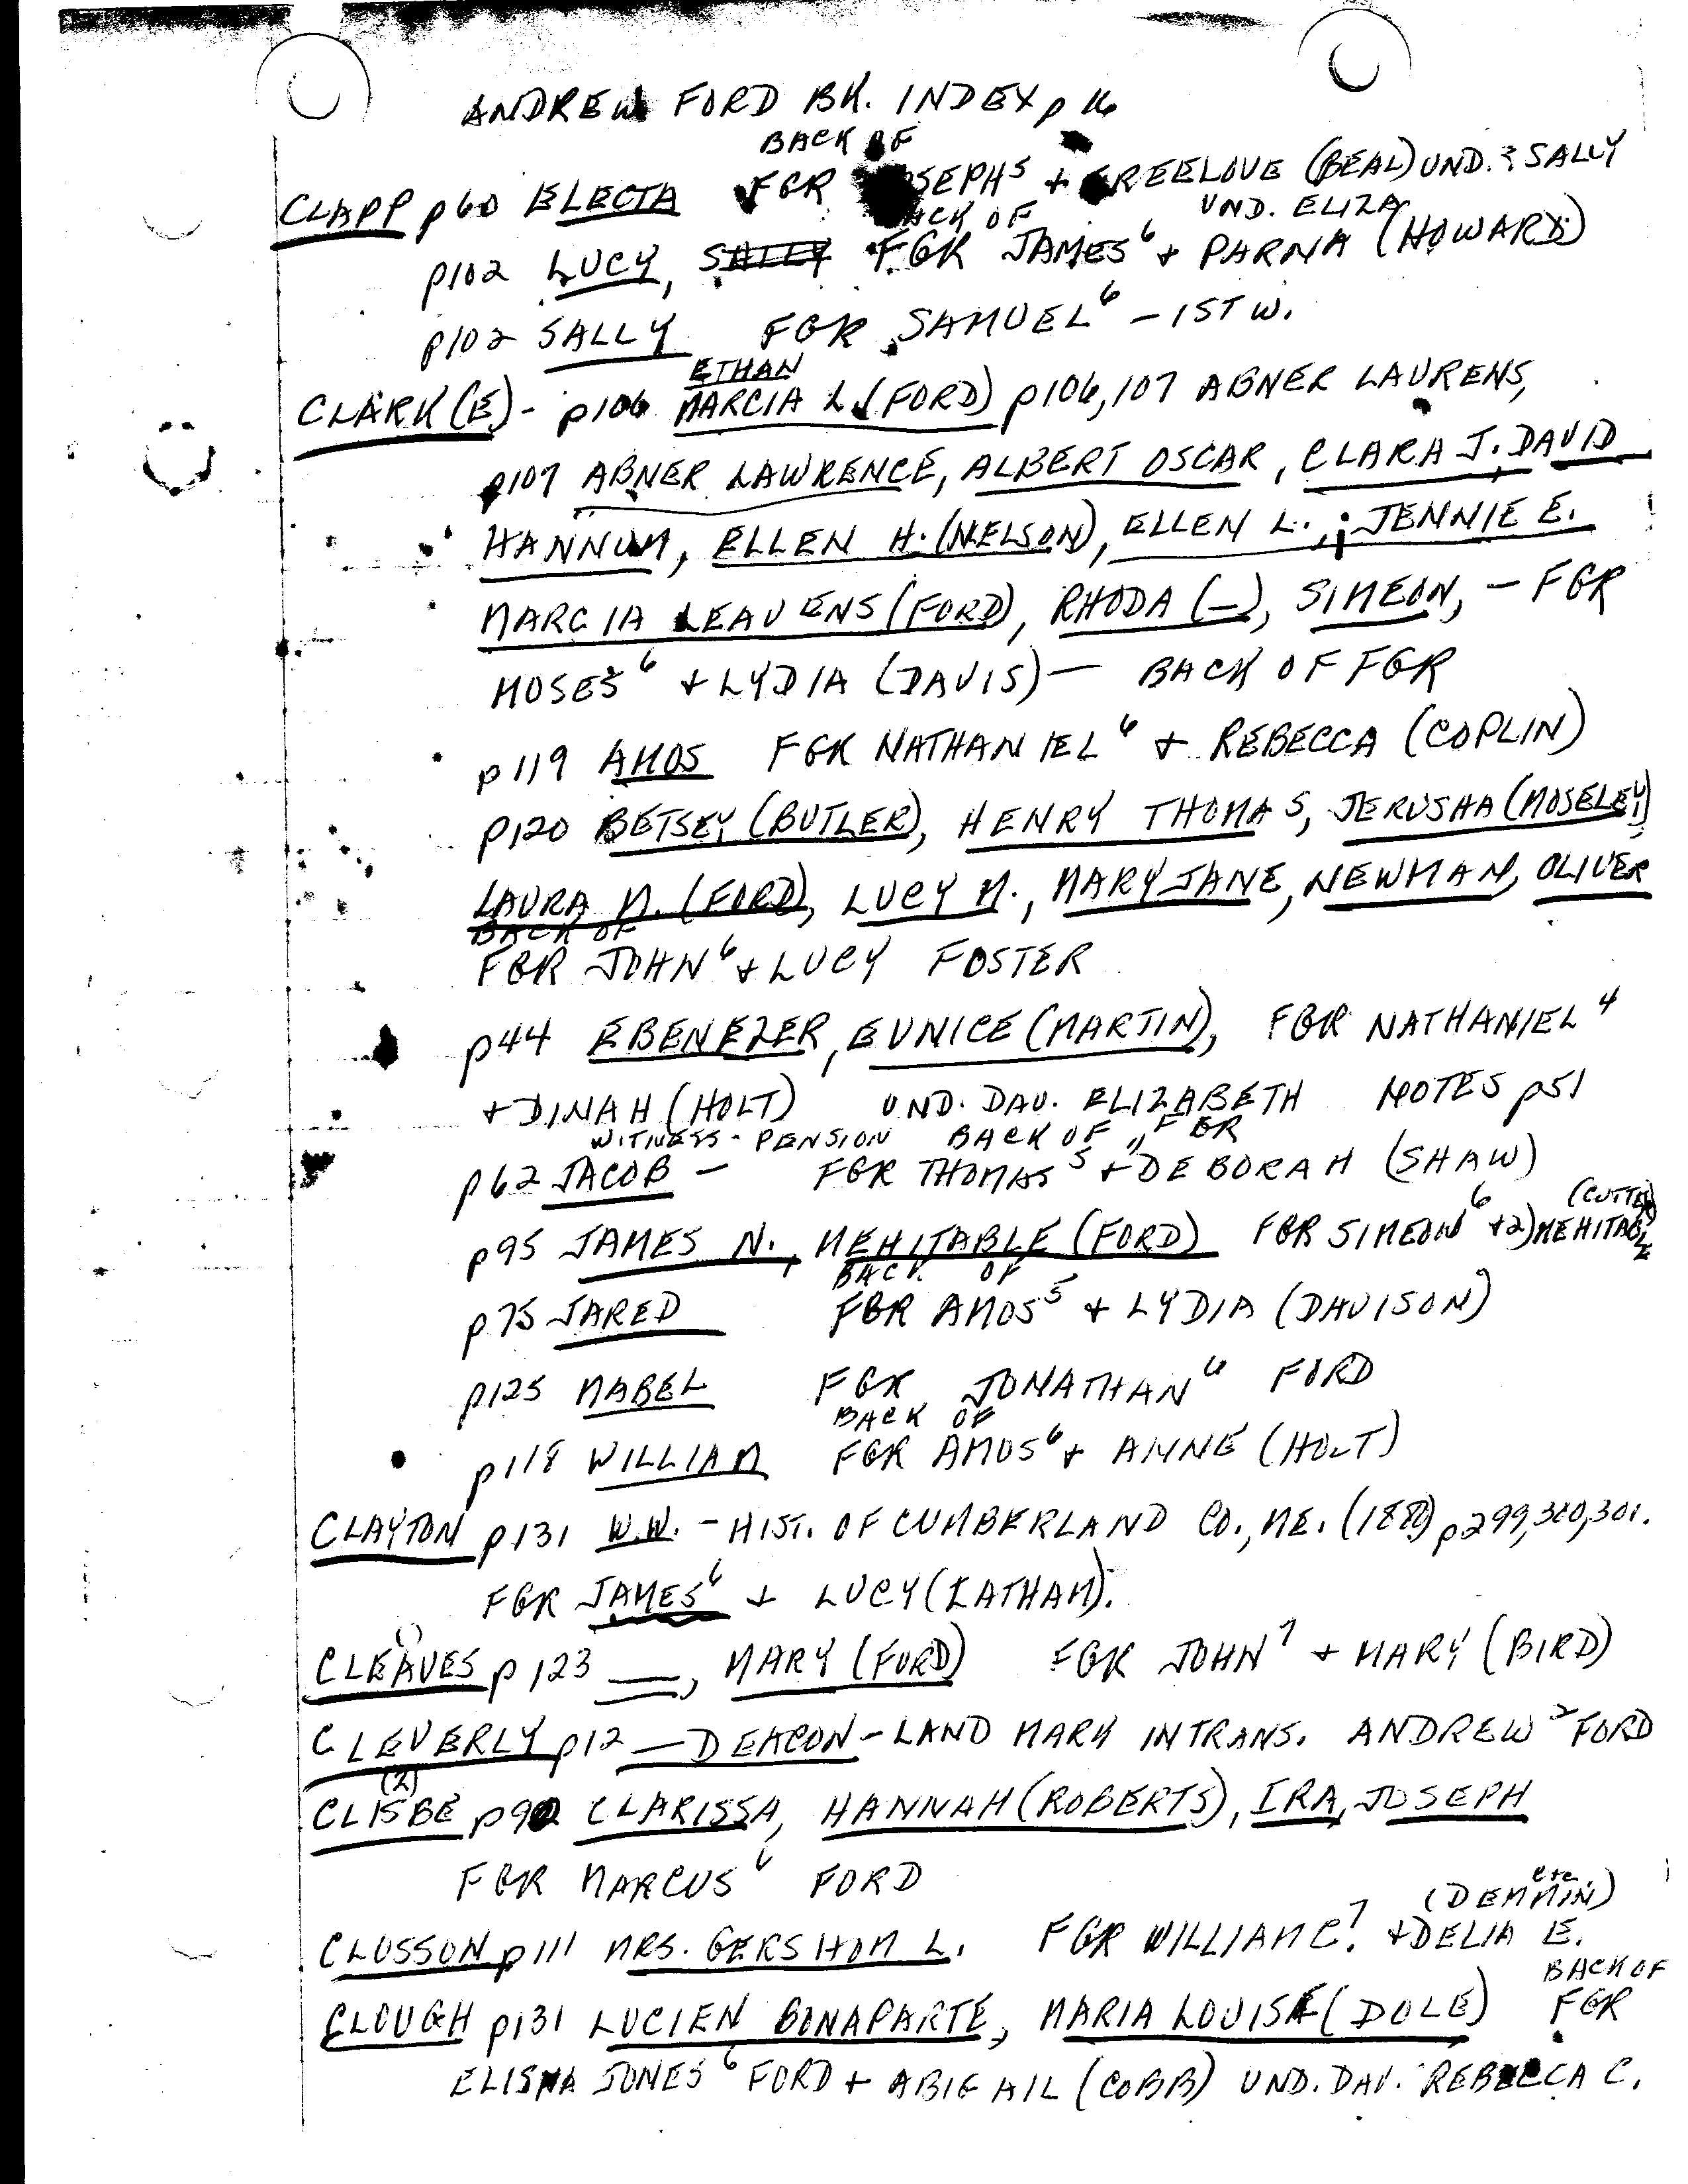 ANDREW FORD BK. INDEX p 16
BACK OF
CLAPP p60 ELECTA FGR JOSEPH⁵ + FREELOVE (BEAL) UND. & SALLY
BACK OF UND. ELIZA
p102 LUCY, SALLY FGR JAMES⁶ + PARNA (HOWARD)
p102 SALLY FGR SAMUEL⁶ - 1ST W.
ETHAN
CLARK(E) - p106 MARCIA L. (FORD) p106, 107 ABNER LAURENS,
p107 ABNER LAWRENCE, ALBERT OSCAR, CLARA J. DAVID
HANNUM, ELLEN H. (NELSON), ELLEN L., JENNIE E.
MARCIA LEAVENS (FORD), RHODA (—), SIMEON, - FGR
MOSES⁶ + LYDIA (DAVIS) — BACK OF FGR
p119 AMOS FGR NATHANIEL⁶ + REBECCA (COPLIN)
p120 BETSEY (BUTLER), HENRY THOMAS, JERUSHA (MOSELEY)
LAURA M. (FORD), LUCY M., MARY JANE, NEWMAN, OLIVER
BACK OF
FGR JOHN⁶ + LUCY FOSTER
p44 EBENEZER, EUNICE (MARTIN), FGR NATHANIEL⁴
+ DINAH (HOLT) UND. DAU. ELIZABETH NOTES p51
WITNESS - PENSION BACK OF " FGR
p62 JACOB - FGR THOMAS⁵ + DEBORAH (SHAW)
(CUTTER)
p95 JAMES N., MEHITABLE (FORD) FGR SIMEON⁶ +2) MEHITABLE
BACK OF
p75 JARED FGR AMOS⁵ + LYDIA (DAVISON)
p125 MABEL FGR JONATHAN⁶ FORD
BACK OF
p118 WILLIAM FGR AMOS⁶ + ANNE (HOLT)
CLAYTON p131 W.W. - HIST. OF CUMBERLAND CO., ME. (1880) p299, 300, 301.
FGR JAMES⁶ + LUCY (LATHAM).
CLEAVES p 123 —, MARY (FORD) FGR JOHN⁷ + MARY (BIRD)
CLEVERLY p12 — DEACON - LAND MARK IN TRANS. ANDREW² FORD
(2)
CLISBE p90 CLARISSA, HANNAH (ROBERTS), IRA, JOSEPH
FGR MARCUS⁶ FORD
etc.
(DEMMIN)
CLOSSON p111 MRS. GERSHOM L. FGR WILLIAM C.⁷ + DELIA E.
BACK OF
CLOUGH p131 LUCIEN BONAPARTE, MARIA LOUISE (DOLE) FGR
ELISHA JONES⁶ FORD + ABIGAIL (COBB) UND. DAU. REBECCA C.